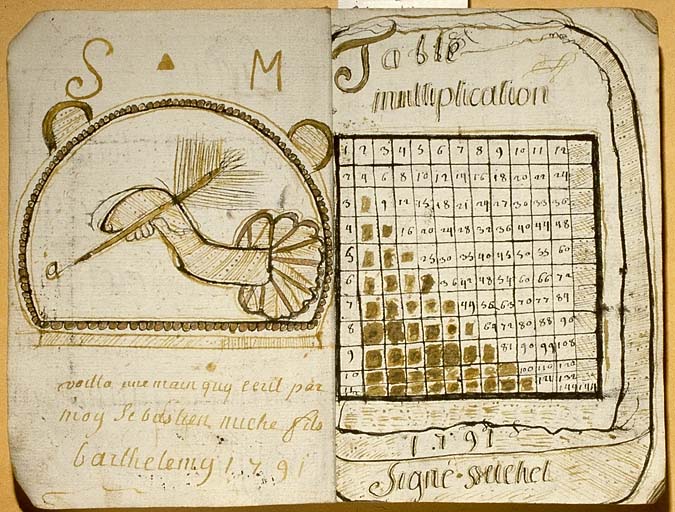 S M
a
voilla une main quy ecrit par
moy Sebastien miche fils
barthelemy 1.791
Table
multiplication
1 2 3 4 5 6 7 8 9 10 11 12
2 4 6 8 10 12 14 16 18 20 22 24
3 9 12 15 18 21 24 27 30 33 36
4 16 20 24 28 32 36 40 44 48
5 25 30 35 40 45 50 55 60
6 36 42 48 54 60 66 72
49 56 63 70 77 84
8 64 72 80 88
9 81 90 99 108
10 100 110 120
1.791
Signé michel